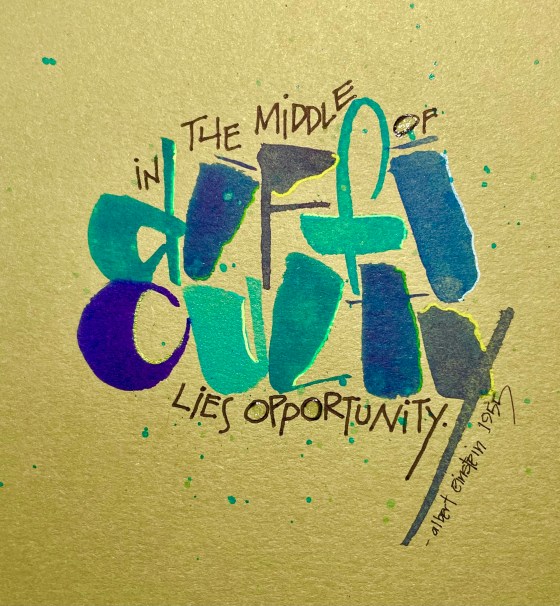 iN THE MiDDLE OF
diFfi
culty
LiES OPPORTUNiTY.
- albert einstein 1955